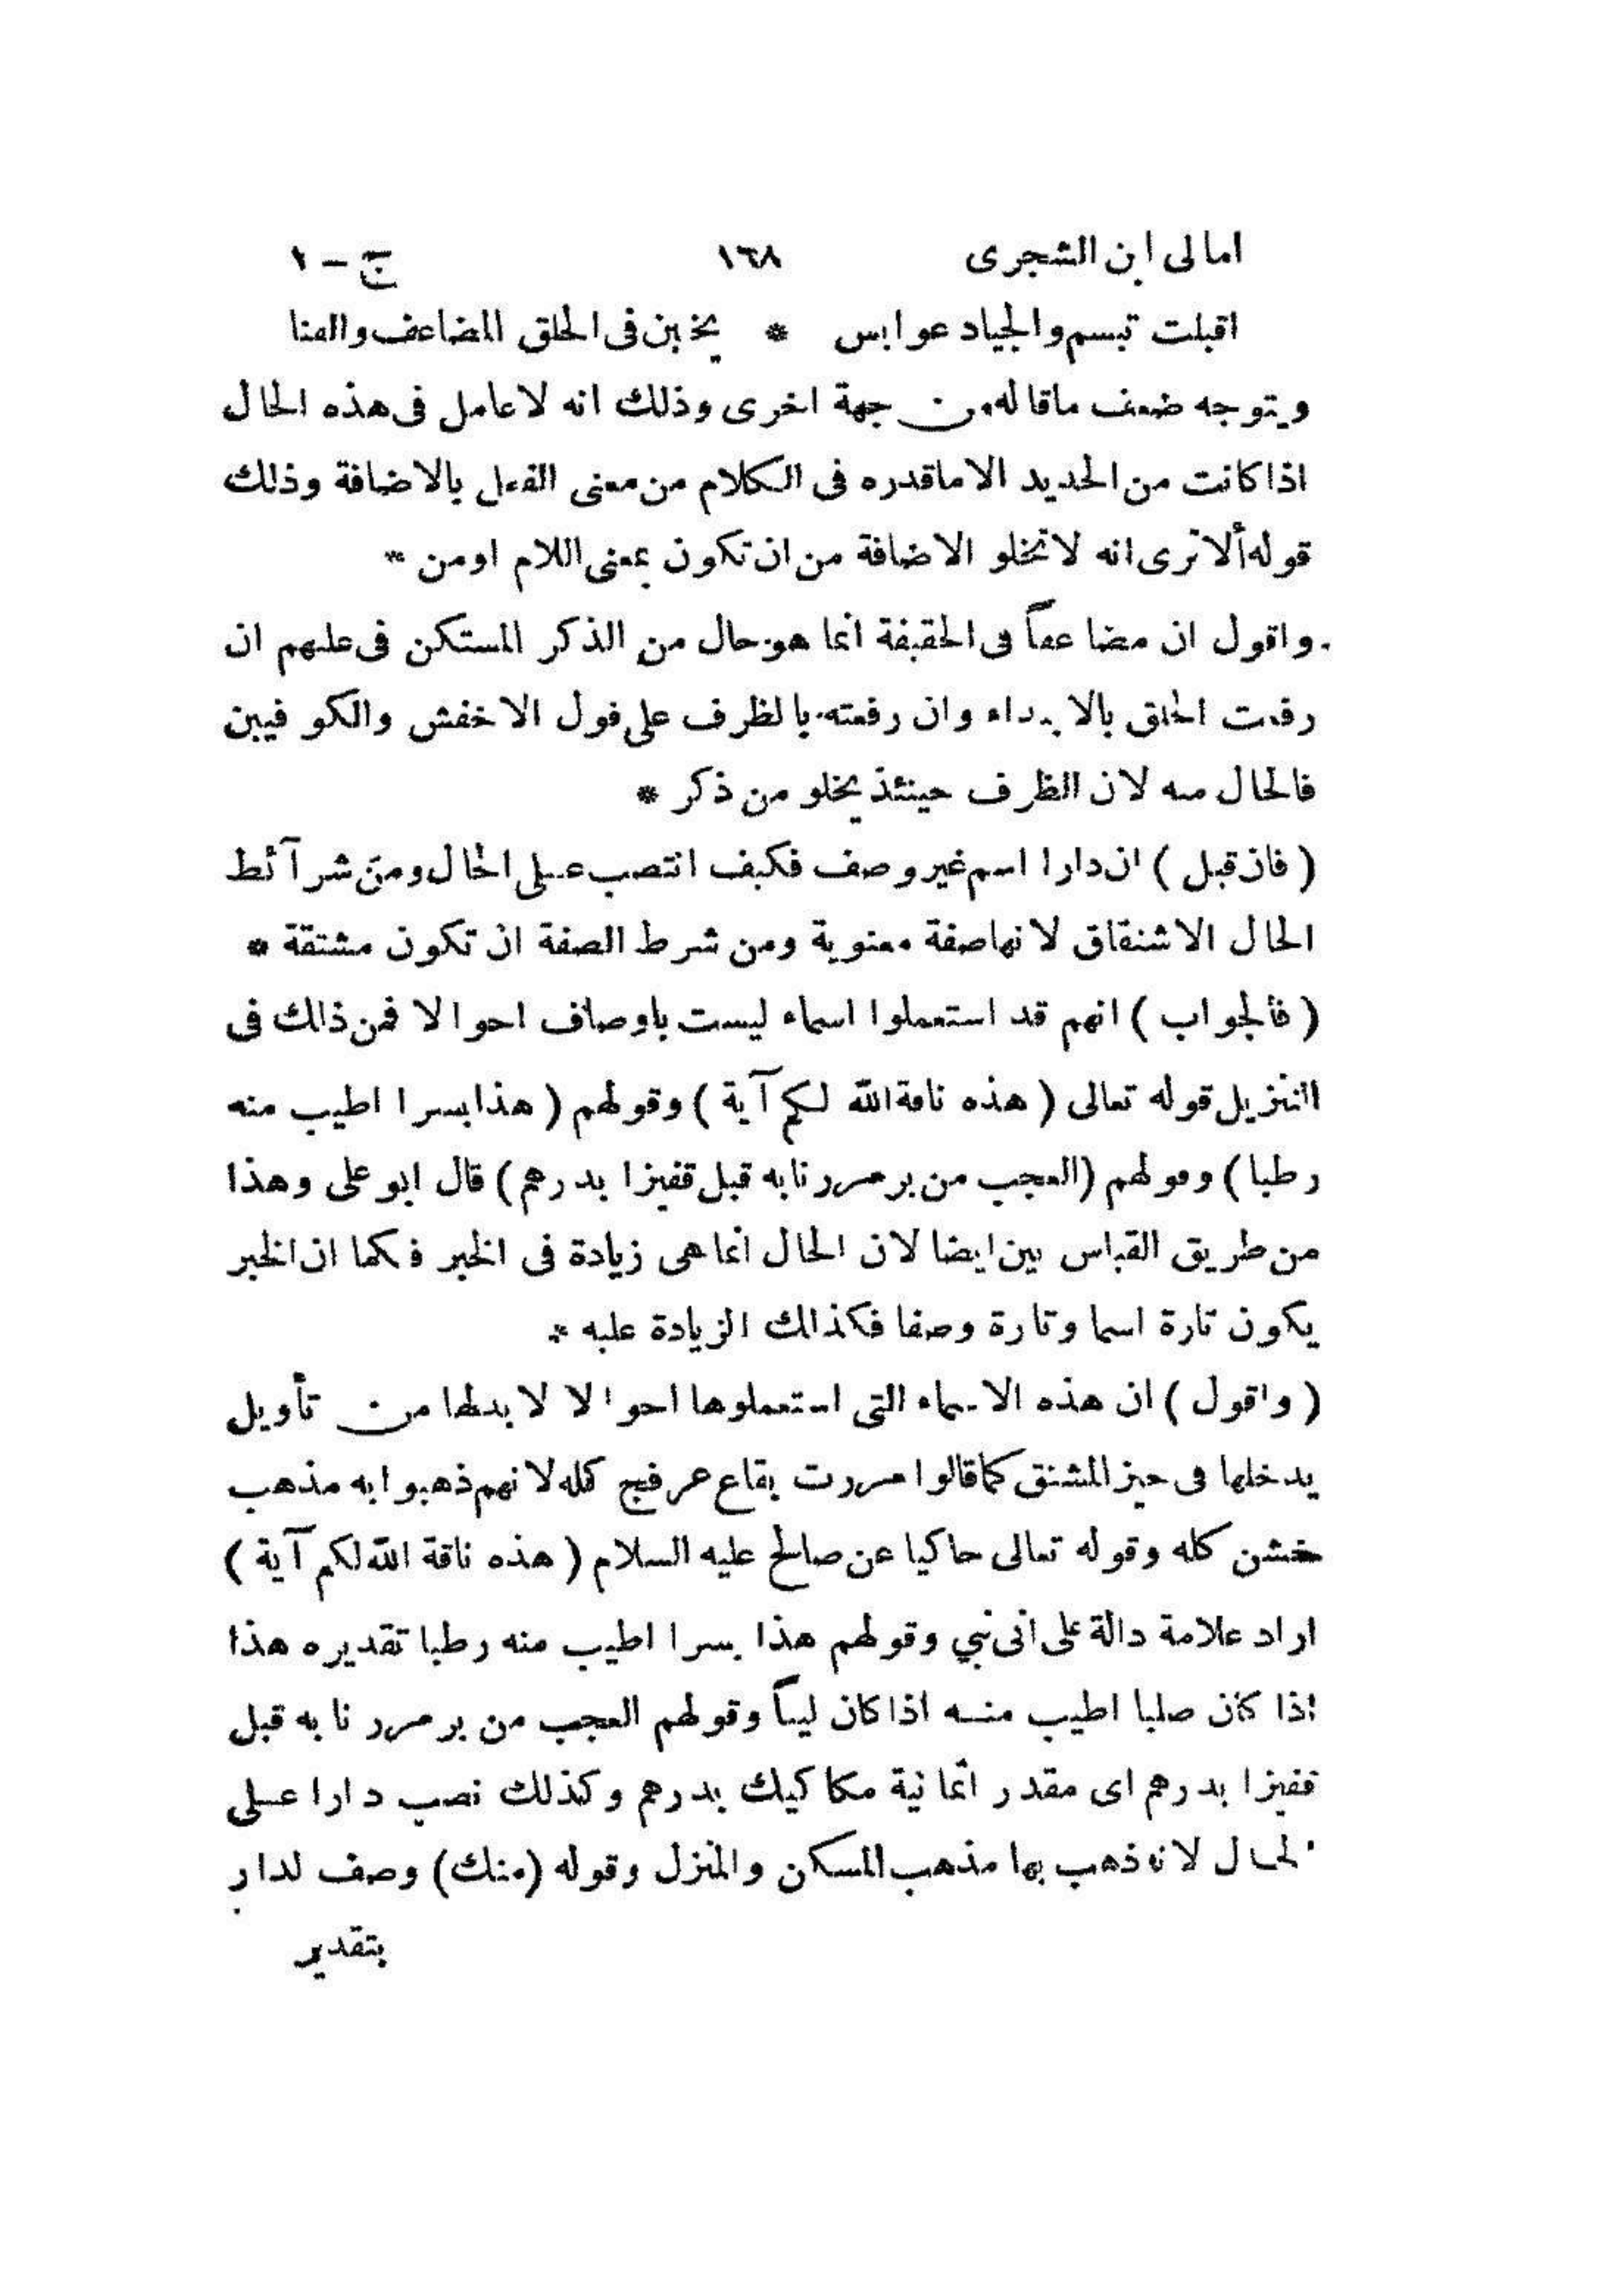 امالى ابن الشجرى ١٦٨ ج - ١
اقبلت تبسم والجياد عوابس * يخببن فى الحلق المضاعف والقنا
ويتوجه ضعف ماقاله من جهة اخرى وذلك انه لا عامل فى هذه الحال
اذا كانت من الحديد الا ماقدره فى الكلام من معنى الفعل بالاضافة وذلك
قوله ألا ترى انه لا تخلو الاضافة من ان تكون بمعنى اللام او من *
واقول ان مضاعفاً فى الحقيقة انما هو حال من الذكر المستكن فى عليهم ان
رفعت الحلق بالابتداء وان رفعته بالظرف على قول الاخفش والكوفيين
فالحال منه لان الظرف حينئذ يخلو من ذكر *
( فان قيل ) ان دارا اسم غير وصف فكيف انتصب على الحال ومن شرآئط
الحال الاشتقاق لانها صفة معنوية ومن شرط الصفة ان تكون مشتقة *
( فالجواب ) انهم قد استعملوا اسماء ليست باوصاف احوالا فمن ذلك فى
التنزيل قوله تعالى ( هذه ناقة الله لكم آية ) وقولهم ( هذا بسرا اطيب منه
رطبا ) وقولهم ( العجب من بر مررنا به قبل قفيزا بدرهم ) قال ابو على وهذا
من طريق القياس بين ايضا لان الحال انما هى زيادة فى الخبر فكما ان الخبر
يكون تارة اسما وتارة وصفا فكذلك الزيادة عليه *
( واقول ) ان هذه الاسماء التى استعملوها احوالا لا بدلها من تأويل
يدخلها فى حيز المشتق كما قالوا مررت بقاع عرفج كله لانهم ذهبوا به مذهب
خشن كله وقوله تعالى حاكيا عن صالح عليه السلام ( هذه ناقة الله لكم آية )
اراد علامة دالة على انى نبي وقولهم هذا بسرا اطيب منه رطبا تقديره هذا
اذا كان صلبا اطيب منه اذا كان ليناً وقولهم العجب من بر مررنا به قبل
قفيزا بدرهم اى مقدرا ثمانية مكاكيك بدرهم وكذلك نصب دارا على
الحال لانه ذهب بها مذهب المسكن والمنزل وقوله (منك) وصف لدار
بتقدير